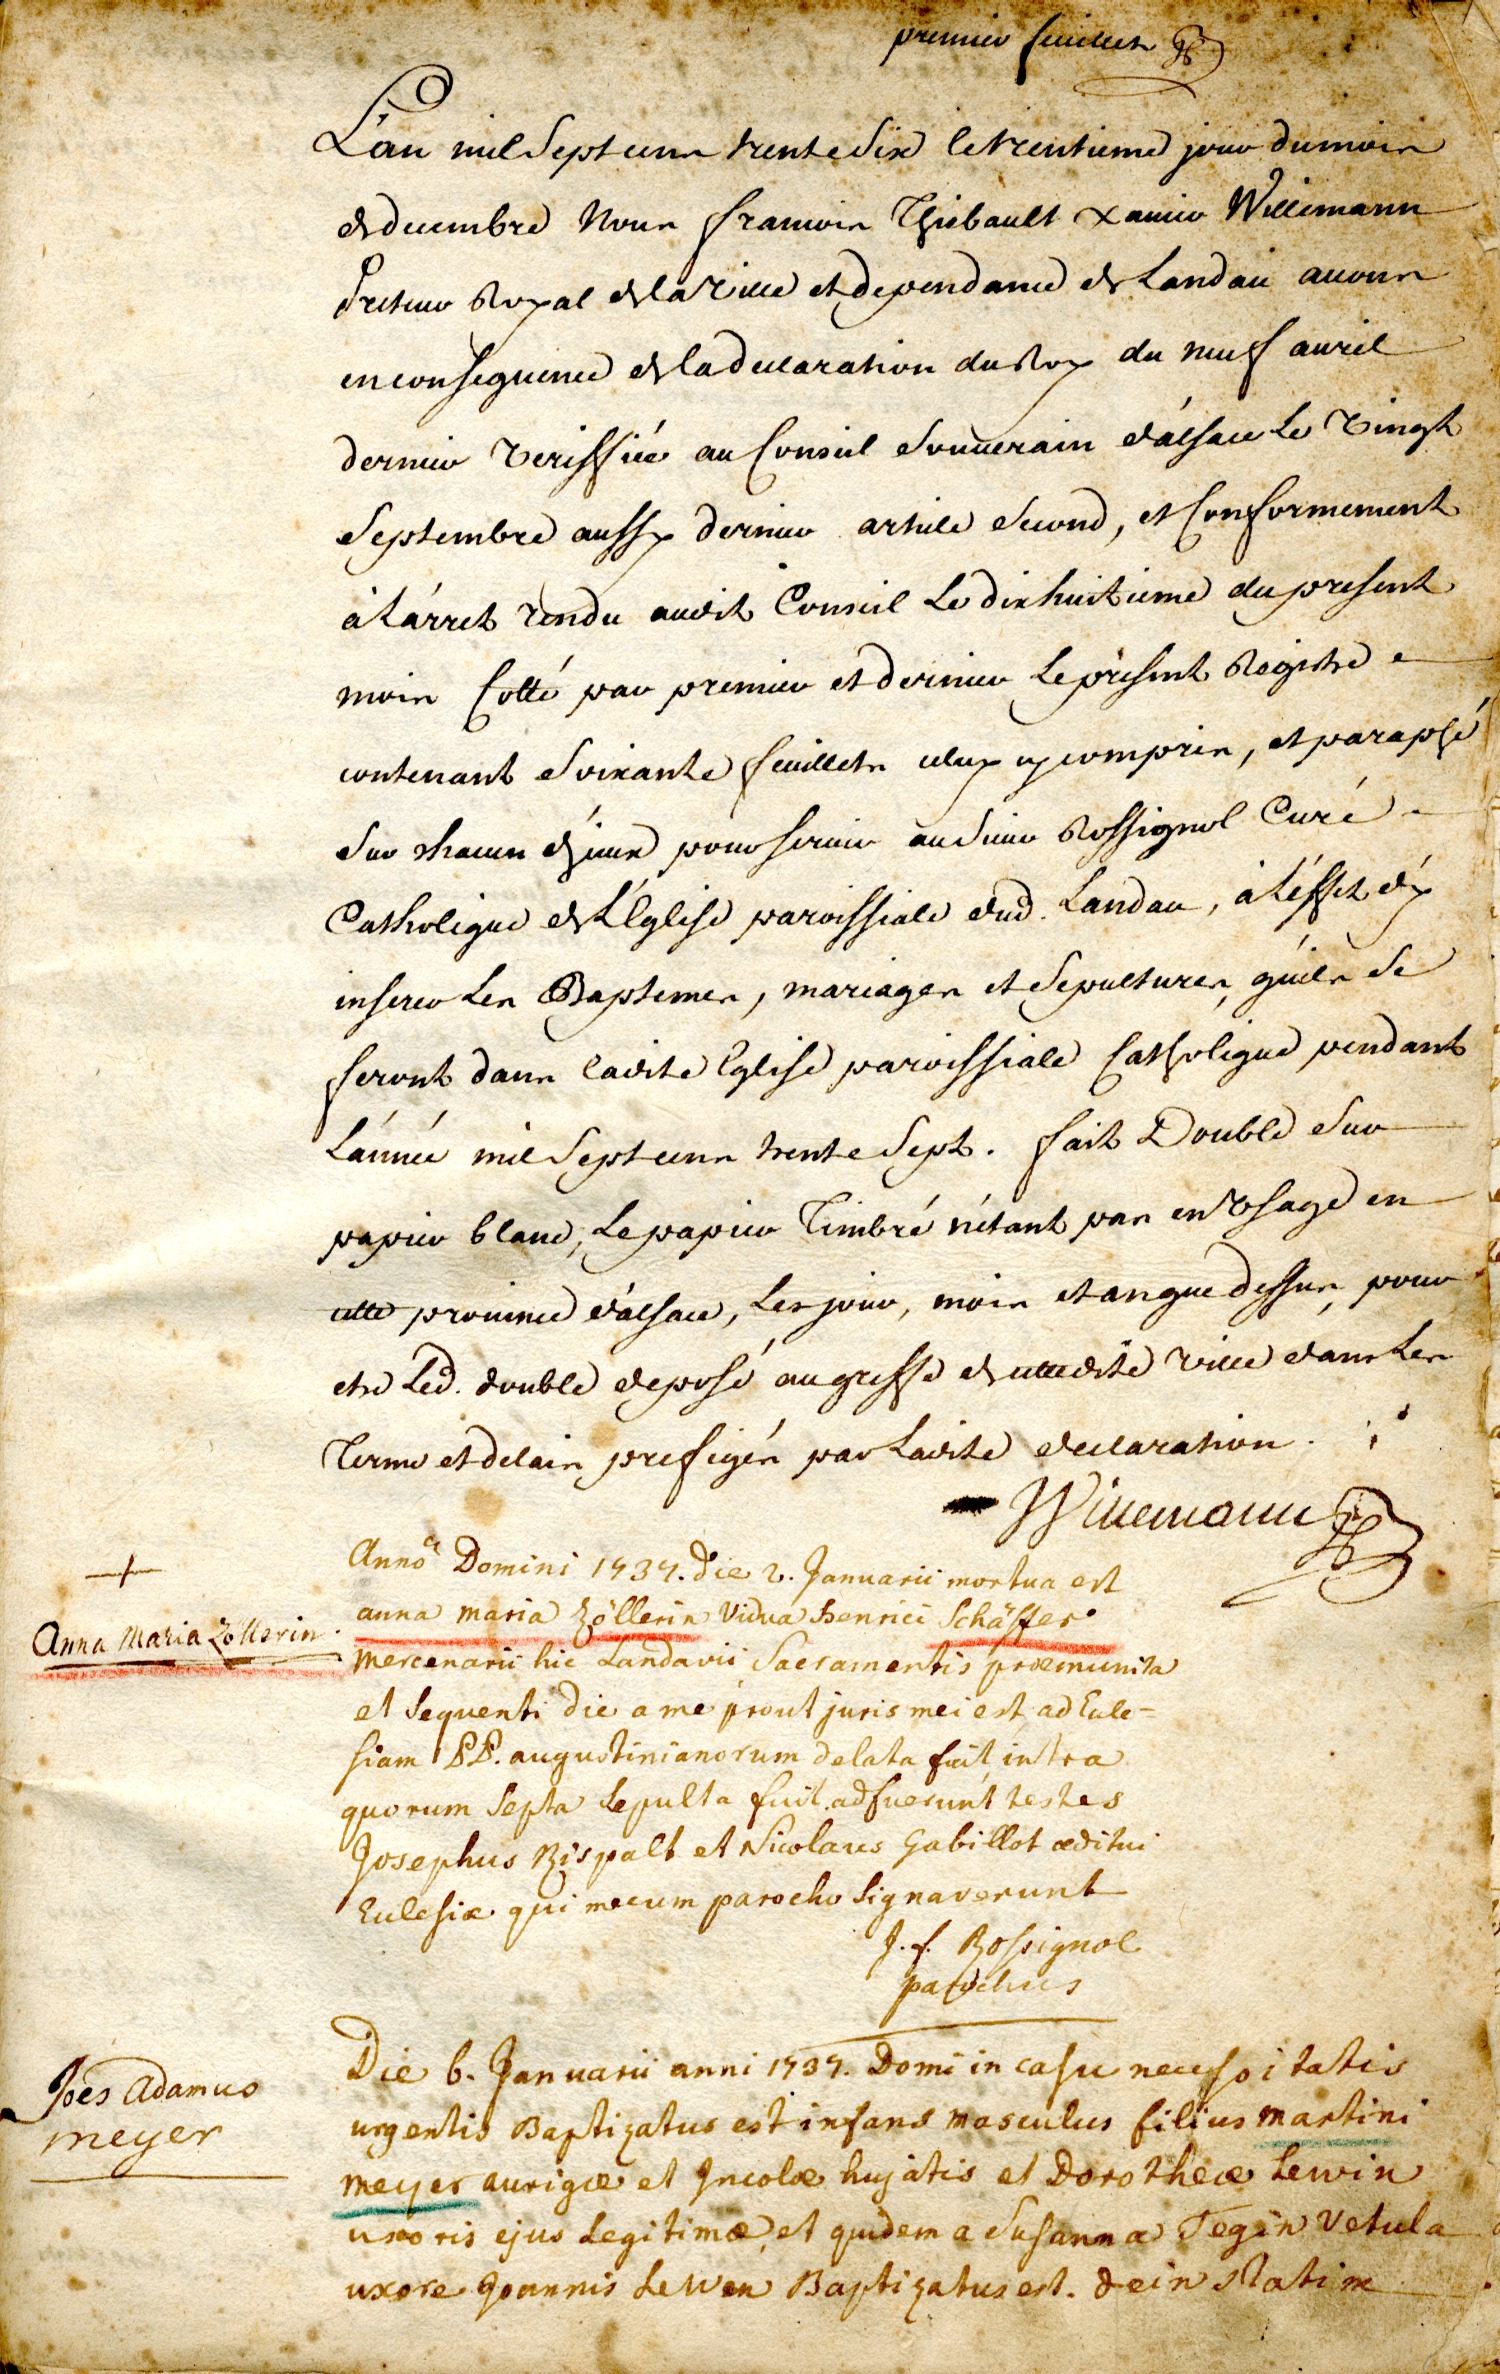 premier feuillet
L'an mil Sept cens trente Six le trentieme jour du mois
de decembre Nous françois Thiebault Xavier Willemann
Preteur Royal de la Ville et dependance de Landau avons
en consequence de la declaration du Roy du neuf avril
dernier Veriffiée au Conseil Souverain d'alsace Le Vingt
Septembre aussy dernier article Second, et Conformement
à l'arret rendu audit Conseil Le dix huitieme du present
mois Cotté par premier et dernier Le present Registre
contenant Soixante feuillets celuy y compris, et paraphé
Sur chacun d'iceux pour servir au Sieur Rossignol Curé
Catholique de L'Eglise paroissiale dud. Landau, à l'éffet d'y
inserer Les Baptemes, mariages et Sepultures, qui Se
feront dans ladite Eglise paroissiale Catholique pendant
L'année mil Sept cens trente Sept. fait Double Sur
papier blanc, Le papier Timbré n'étant pas en Usage en
cette province d'alsace, Les jour, mois et an que dessus, pour
etre Led. double deposé au greffe de cettedite Ville dans Les
Terme et delais prefigés par Ladite declaration.
Willemann
Anno Domini 1737. die 2. Januarii mortua est
anna maria Zöllerin Vidua henrici Schäffer
Anna Maria Zöllerin
mercenarii hic Landavii Sacramentis præmunita
et sequenti die a me prout juris mei est ad Eccle-
siam PP. augustinianorum delata fuit intra
quorum septa sepulta fuit. adfuerunt testes
Josephus Rispalt et Nicolaus Gabillot æditui
Ecclesiæ qui mecum parocho signaverunt
J. f. Rossignol
parochus
Joes Adamus
meyer
Die 6. Januarii anni 1737. Domi in casu necessitatis
urgentis Baptizatus est infans masculus filius martini
meyer aurigæ et Incolæ hujatis et Dorotheæ Lewin
uxoris ejus Legitimæ, et quidem a Susanna Tegin Vetula
uxore Joannis Lewen Baptizatus est. dein statim